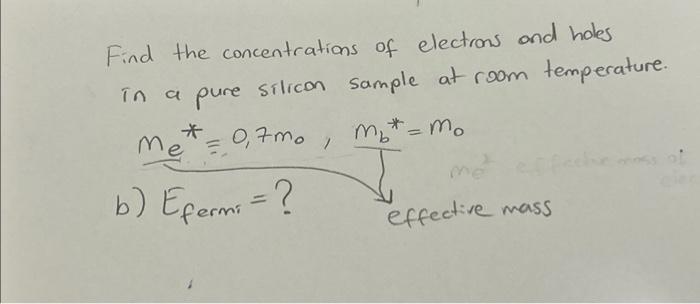 Find the concentrations of electrons and holes
in a pure silicon sample at room temperature.
me* = 0,7mo , mb* = mo
b) Efermi = ?
effective mass